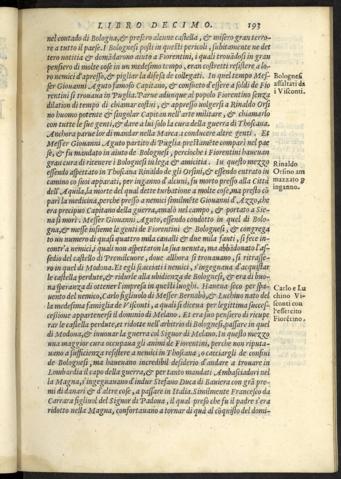 LIBRO DECIMO. 193
nel contado di Bologna, & presero alcune castella, & misero gran terrore
re a tutto il paese. I Bolognesi posti in questi pericoli, subitamente ne dettero
tero notitia & domãdarono aiuto a Fiorentini, i quali trouãdosi in gran
pensiero di molte cose in un medesimo tempo, eran costretti resistere a loro
ro nemici d'apresso, & pigliar la difesa de collegati. In quel tempo Messer
ser Giouanni Aguto famoso Capitano, & condotto d'essere a soldi de Fiorentini
rentini si trouaua in Puglia. Parue adunque al popolo Fiorentino senza
dilation di tempo di chiamar costui, & appresso uolgersi a Rinaldo Orsi
no buono potente & singular Capitan nell'arte militare, & chiamarlo
con tutte le sue genti, & dare a lui solo la cura della guerra di Thoscana.
Anchora parue lor di mandar nella Marca a conducere altre genti. Et
Messer Giouanni Aguto partito di Puglia prestamẽte comparì nel paese
se, & fu mandato in aiuto de Bolognesi, perciochè i Fiorentini haueuan
gran cura di ritenere i Bolognesi in lega & amicitia. In questo mezzo
essendo aspettato in Thoscana Rinaldo de gli Orsi, & essendo entrato in
camino co suoi apparati, per inganno d'alcuni, fu morto presso alla Città
dell'Aquila, la morte del qual dette turbatione a molte cose, ma prestò cõ
parì la medicina, perche presso a nemici similmẽte Giouanni d'Azzo, che
era precipuo Capitano della guerra, amalò nel campo, & portato a Siena
na si morì. Messer Giouanni Aguto, essendo condotto in quel di Bologna
na, & messe insieme le genti de Fiorentini & Bolognesi, & congregato
to un numero di quasi quattro mila caualli & due mila fanti, si fece incontr'
a nemici, i quali non aspettaron la sua uenuta, ma abbãdonato l'assedio
sedio del castello di Premilcuore, doue allhora si trouauano, si ritrassero
ro in quel di Modona. Et egli scacciati i nemici, s'ingegnaua d'acquistar
le castella perdute, & ridurle alla ubidienza de Bolognesi, & era di buona
na speranza di ottener l'impresa in questi luoghi. Haueua seco per spauento
uento de nemici, Carlo figliuolo di Messer Bernabò, & Luchino nato della
la medesima famiglia de Visconti, a quali si diceua per legittima successione
cessione appartenersi il dominio di Melano. Et era suo pensiero di ricuperar
rar le castella perdute, et ridotte nell'arbitrio di Bolognesi, passare in quel
di Modona, & innouar la guerra col Signor di Melano. In questo mezzo
una maggior cura occupaua gli animi de Fiorentini, perche non riputauano
uano a sufficienza resistere a nemici in Thoscana, o cacciargli de confini
de Bolognesi, ma haueuano incredibil desiderio d'andare a trouare in
Lombardia il capo della guerra, & per tanto mandati Ambasciadori nella
la Magna, s'ingegnauano d'indur Stefano Duca di Bauiera con grã promesse
mi di danari & d'altre cose, a passare in Italia. Similmente Francesco da
Carrara figliuol del Signor di Padoua, il qual preso che fu il padre s'era
ridotto nella Magna, confortauano a tornar di quà al cõquisto del domi-
Bolognesi
assaltati da
i Visconti.
Rinaldo
Orsino am
mazzato p
inganno.
Carlo e Lu
chino Vi-
sconti con
l'essercito
Fiorẽtino.